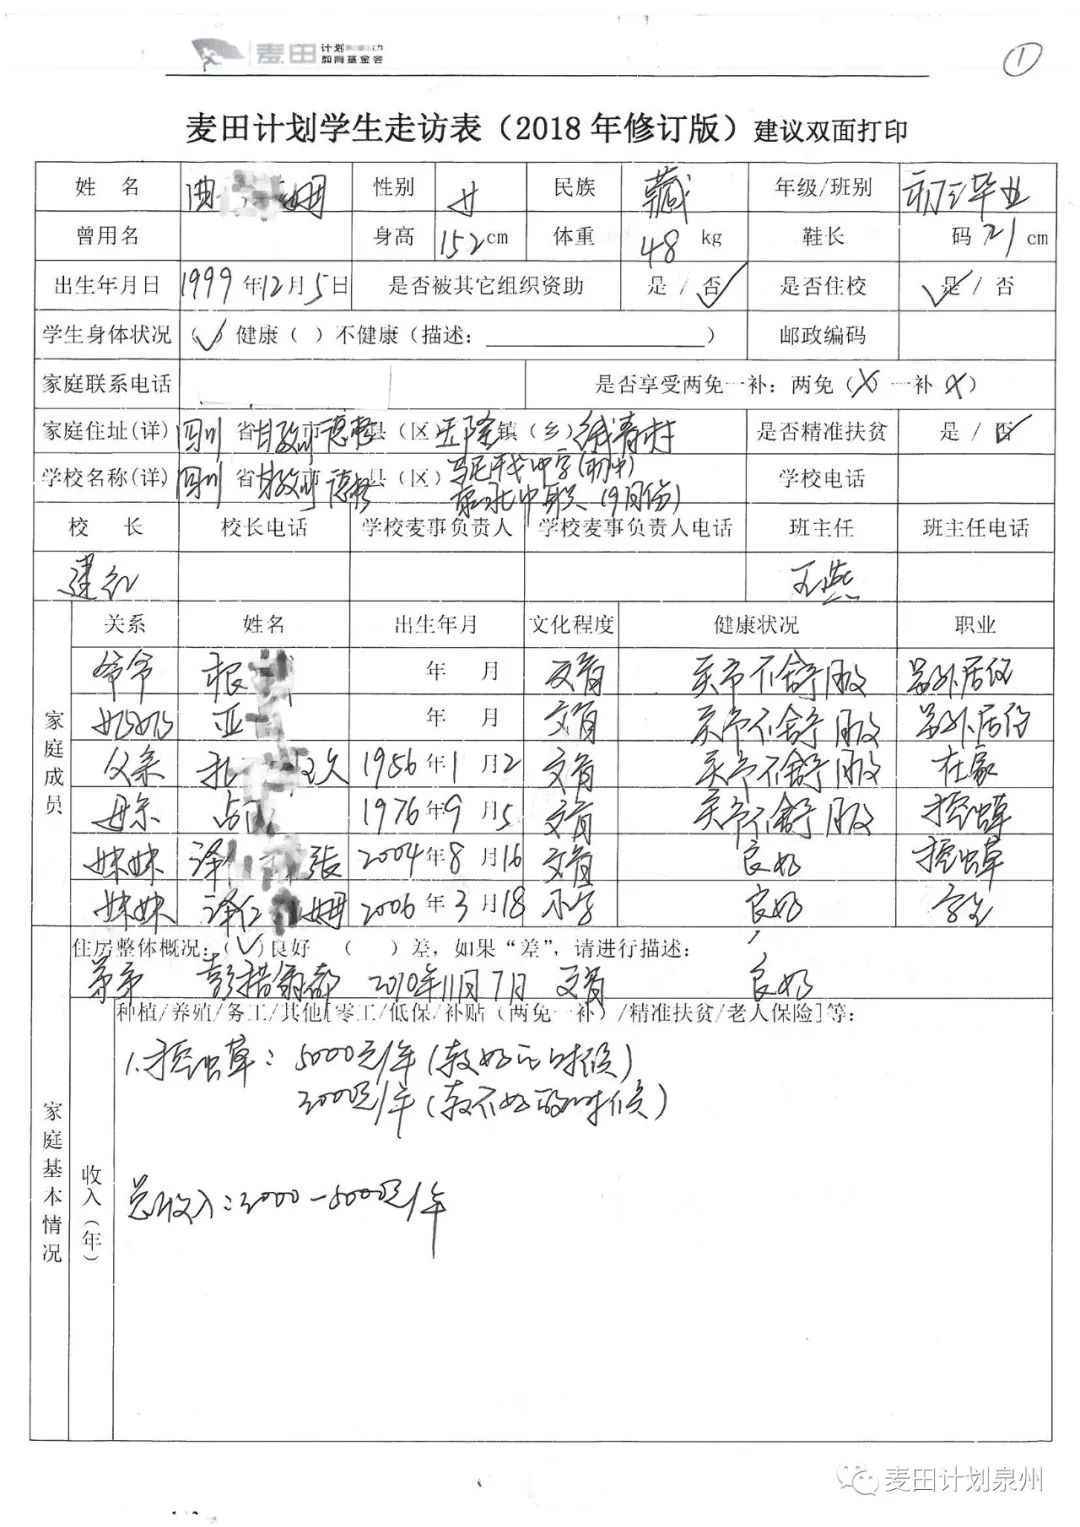 麦田 计划
教育基金会
1
麦田计划学生走访表（2018年修订版）建议双面打印
姓 名 曲 姆 性别 女 民族 藏 年级/班别 初三毕业
曾用名 身高 152cm 体重 48 kg 鞋长 码 21 cm
出生年月日 1999年12月5日 是否被其它组织资助 是 / 否 是否住校 是 / 否
学生身体状况 （✓）健康（ ）不健康（描述： ） 邮政编码
家庭联系电话 是否享受两免一补：两免（X）一补（X）
家庭住址(详) 四川 省 甘孜州 市 德格 县（区） 镇（乡） 村 是否精准扶贫 是 / 否
学校名称(详) 四川 省 甘孜州 市 德格 县（区） 中学(初中) 学校电话
中职（9月份）
校 长 校长电话 学校麦事负责人 学校麦事负责人电话 班主任 班主任电话
建红 王燕
家庭成员 关系 姓名 出生年月 文化程度 健康状况 职业
爷爷 根 年 月 文盲 不舒服
奶奶 亚 年 月 文盲 不舒服
父亲 扎 次 1956年1月2 文盲 不舒服 在家
母亲 占 1976年9月5 文盲 不舒服 挖虫草
妹妹 泽 张 2004年8月16 文盲 良好 挖虫草
妹妹 泽仁 姆 2006年3月18 小学 良好 学生
家庭基本情况 住房整体概况：（✓）良好 （ ）差，如果“差”，请进行描述：
弟弟 彭措 2010年11月7日 文盲 良好
收入（年） 种植/养殖/务工/其他[零工/低保/补贴（两免一补）/精准扶贫/老人保险]等：
1.挖虫草：5000元/年（较好的时候）
3000元/年（较不好的时候）
总收入：3000－5000元/年
麦田计划泉州